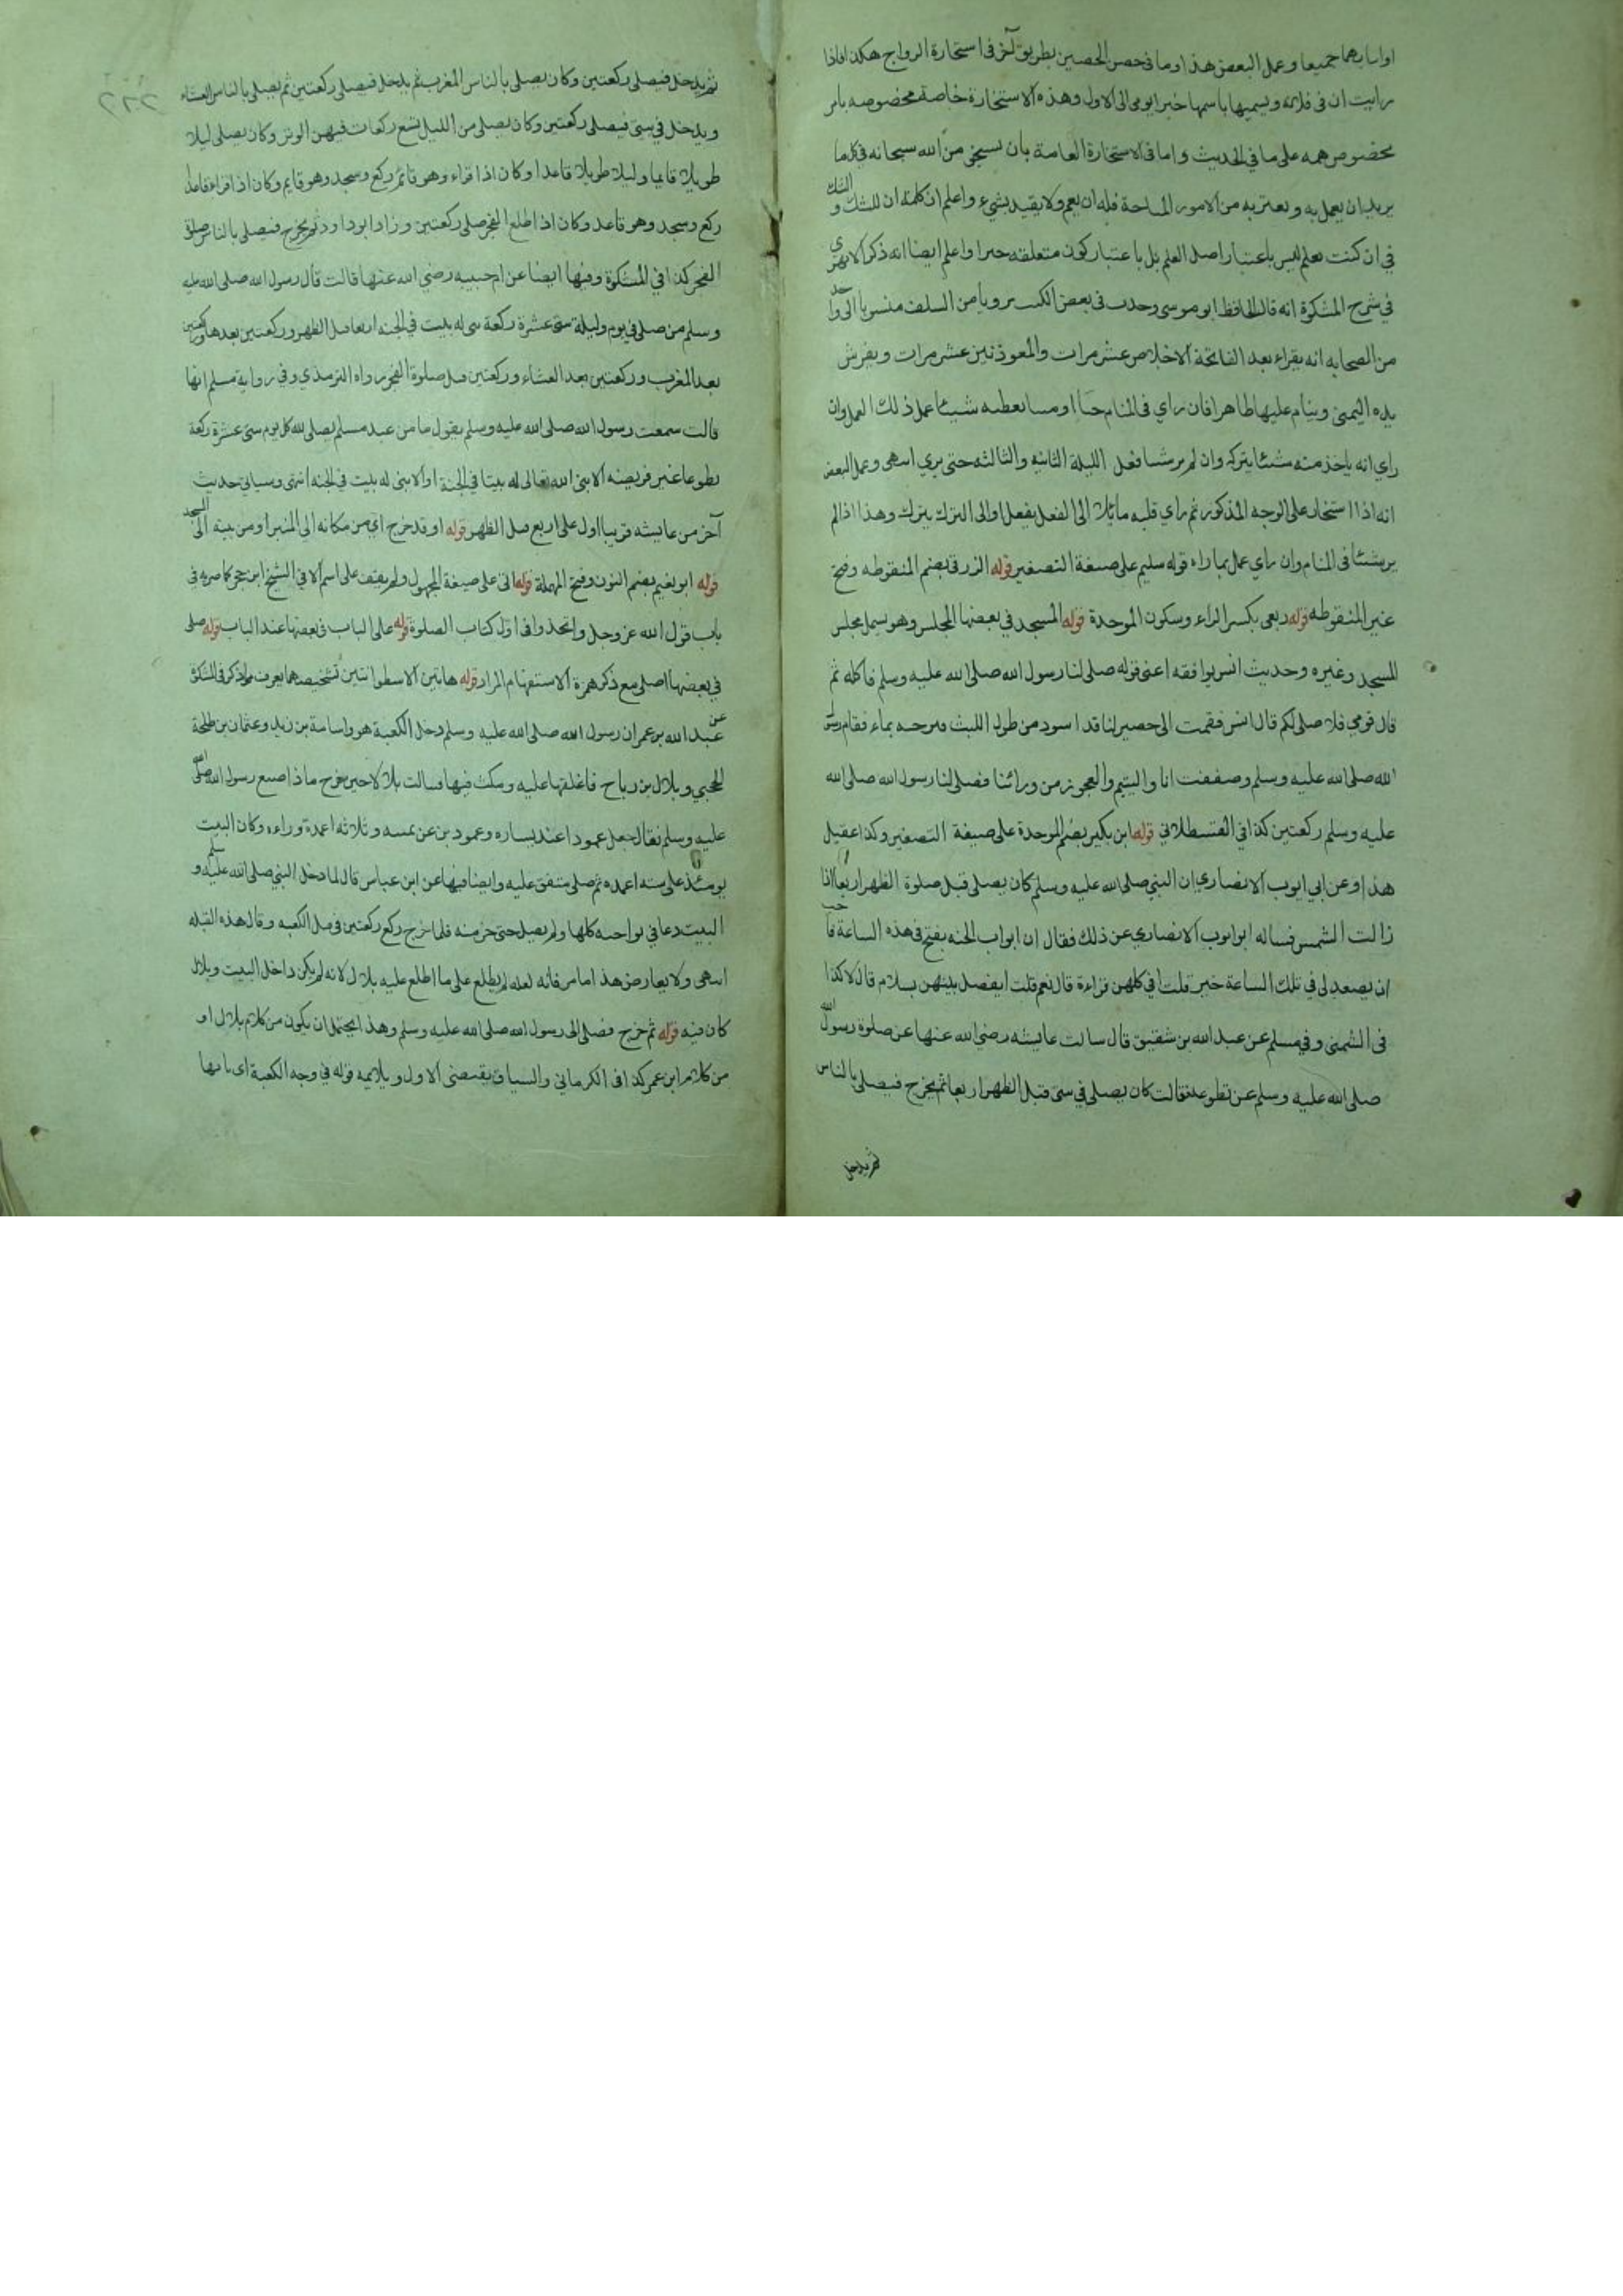 اوايسارهما جميعا وعمل البعض هذا وما في حصن الحصين بطريق آخر في استخارة الزواج هكذا فاذا
رايت ان في فلانة ويسميها باسمها خيرا يومى الى الاول وهذه الاستخارة خاصة مخصوصه بامر
مخصوص همه على ما في الحديث واما في الاستخارة العامة بان من الله سبحانه في كل ما
يريد ان يعمل به من الامور المباحة فله ان يعم ولا يقيد بشيء واعلم ان كلمة ان للشك و الشك
في ان كنت تعلم ليس باعتبار اصل العلم بل باعتبار كون متعلقه خيرا واعلم ايضا انه ذكر الابهري
في شرح المشكوة انه قال الحافظ ابو موسى وجدت في بعض الكتب مرويا من السلف منسوبا الى واحد
من الصحابه انه يقراء بعد الفاتحة الاخلاص عشر مرات والمعوذتين عشر مرات ويفرش
يده اليمنى وينام عليها طاهرا فان راي في المنام او يعطيه شيئا عمل ذلك العمل وان
راي انه ياخذ منه شيئا يتركه وان لم ير شيئا فعل الليلة الثانيه والثالثه حتى يري انتهى وعمل البعض
انه اذا استخار على الوجه المذكور ثم راي قلبه مائلا الى الفعل يفعل او الى الترك يترك وهذا اذا لم
ير شيئا في المنام وان راي عمل بما راه قوله سليم على صيغة التصغير قوله الزرقي بضم المنقوطه وفتح
غير المنقوطه قوله ربعي بكسر الراء وسكون الموحدة قوله المسجد في بعضها المجلس وهو يشمل مجلس
المسجد وغيره وحديث انس يوافقه اعنى قوله صلى لنا رسول الله صلى الله عليه وسلم فاكله ثم
قال قومي فلا صلي لكم قال انس فقمت الى حصير لنا قد اسود من طول اللبث فنرحه بماء فقام رسول
الله صلى الله عليه وسلم وصففت انا واليتيم والعجوز من ورائنا فصلى لنا رسول الله صلى الله
عليه وسلم ركعتين كذا في القسطلاني قوله ابن بكير بضم الموحدة على صيغة التصغير وكذا عقيل
هذا وعن ابي ايوب الانصاري ان النبي صلى الله عليه وسلم كان يصلى قبل صلوة الظهر اربعا اذا
زالت الشمس فساله ابو ايوب الانصاري عن ذلك فقال ان ابواب الجنه يفتح في هذه الساعة فاحب
ان يصعد لي في تلك الساعة خير قلت افي كلهن قراءة قال نعم قلت ايفصل بينهن بسلام قال لا كذا
في الشمني وفي مسلم عن عبد الله بن شقيق قال سالت عايشه رضي الله عنها عن صلوة رسول الله
صلى الله عليه وسلم عن تطوعه فقالت كان يصلى في بيتي قبل الظهر اربعا ثم يخرج فيصلي بالناس
ثم يدخل
ثم يدخل فيصلى ركعتين وكان يصلى بالناس المغرب ثم يدخل فيصلى ركعتين ثم يصلى بالناس العشاء
ويدخل في بيتي فيصلى ركعتين وكان يصلى من الليل تسع ركعات فيهن الوتر وكان يصلى ليلا
طويلا قايما وليلا طويلا قاعدا وكان اذا قراء وهو قائم ركع وسجد وهو قايم وكان اذا قراء قاعدا
ركع وسجد وهو قاعد وكان اذا طلع الفجر صلى ركعتين وزاد ابو داود ثم يخرج فيصلى بالناس صلوة
الفجر كذا في المشكوة وفيها ايضا عن ام حبيبه رضي الله عنها قالت قال رسول الله صلى الله عليه
وسلم من صلى في يوم وليلة ثنتى عشرة ركعة بني له بيت في الجنه اربعا قبل الظهر وركعتين بعدها وركعتين
بعد المغرب وركعتين بعد العشاء وركعتين قبل صلوة الفجر رواه الترمذي وفي رواية مسلم انها
قالت سمعت رسول الله صلى الله عليه وسلم يقول ما من عبد مسلم يصلى لله كل يوم ثنتى عشرة ركعة
تطوعا غير فريضه الا بنى الله تعالى له بيتا في الجنة او الا بنى له بيت في الجنه انتهى وسياتي حديث
آخر من عايشه قريبا اول على اربع قبل الظهر قوله او قد خرج اي من مكانه الى المنبر او من بيته الى المسجد
قوله ابو نعيم بضم النون وفتح المهملة قوله اتى على صيغة المجهول ولم يقف على اسم الاتي الشيخ ابن حجر كما صرح به في
باب قول الله عز وجل واتخذوا في اول كتاب الصلوة قوله على الباب في بعضها عند الباب قوله صلى
في بعضها اصلى مع ذكر همزة الاستفهام المراد قوله هاتين الاسطوانتين تشخيصهما يعرف مما ذكر في المشكوة عن
عبد الله بن عمر ان رسول الله صلى الله عليه وسلم دخل الكعبة هو واسامة بن زيد وعثمان بن طلحة
الحجبي وبلال بن رباح فاغلقها عليه ومكث فيها فسالت بلالا حين خرج ماذا صنع رسول الله صلى الله
عليه وسلم فقال جعل عمودا عند يساره وعمودين عن يمينه وثلاثه اعمدة وراءه وكان البيت
يومئذ على سته اعمده ثم صلى متفق عليه وايضا فيها عن ابن عباس قال لما دخل النبي صلى الله عليه وسلم
البيت دعا في نواحيه كلها ولم يصل حتى خرج منه فلما خرج ركع ركعتين في قبل الكعبه وقال هذه القبله
انتهى ولا يعارض هذا ما مر فانه لعله لم يطلع على ما اطلع عليه بلال لانه لم يكن داخل البيت وبلال
كان فيه قوله ثم خرج فصلى الى رسول الله صلى الله عليه وسلم وهذا يحتمل ان يكون من كلام بلال او
من كلام ابن عمر كذا في الكرماني والسياق يقتضى الاول ويلايمه قوله في وجه الكعبة اى بابها